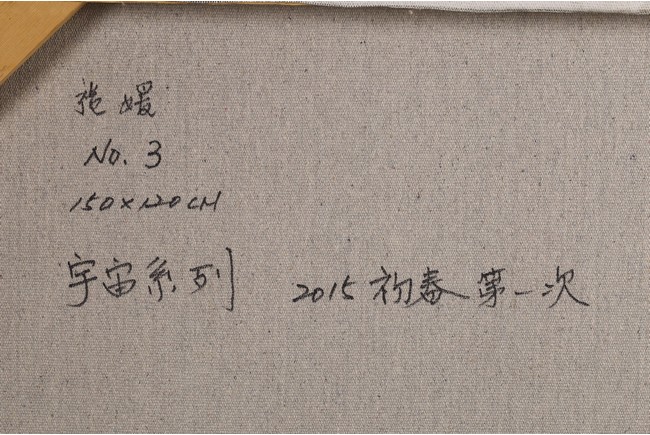 张媛
No. 3
150×120CM
宇宙系列 2015 初春 第一次